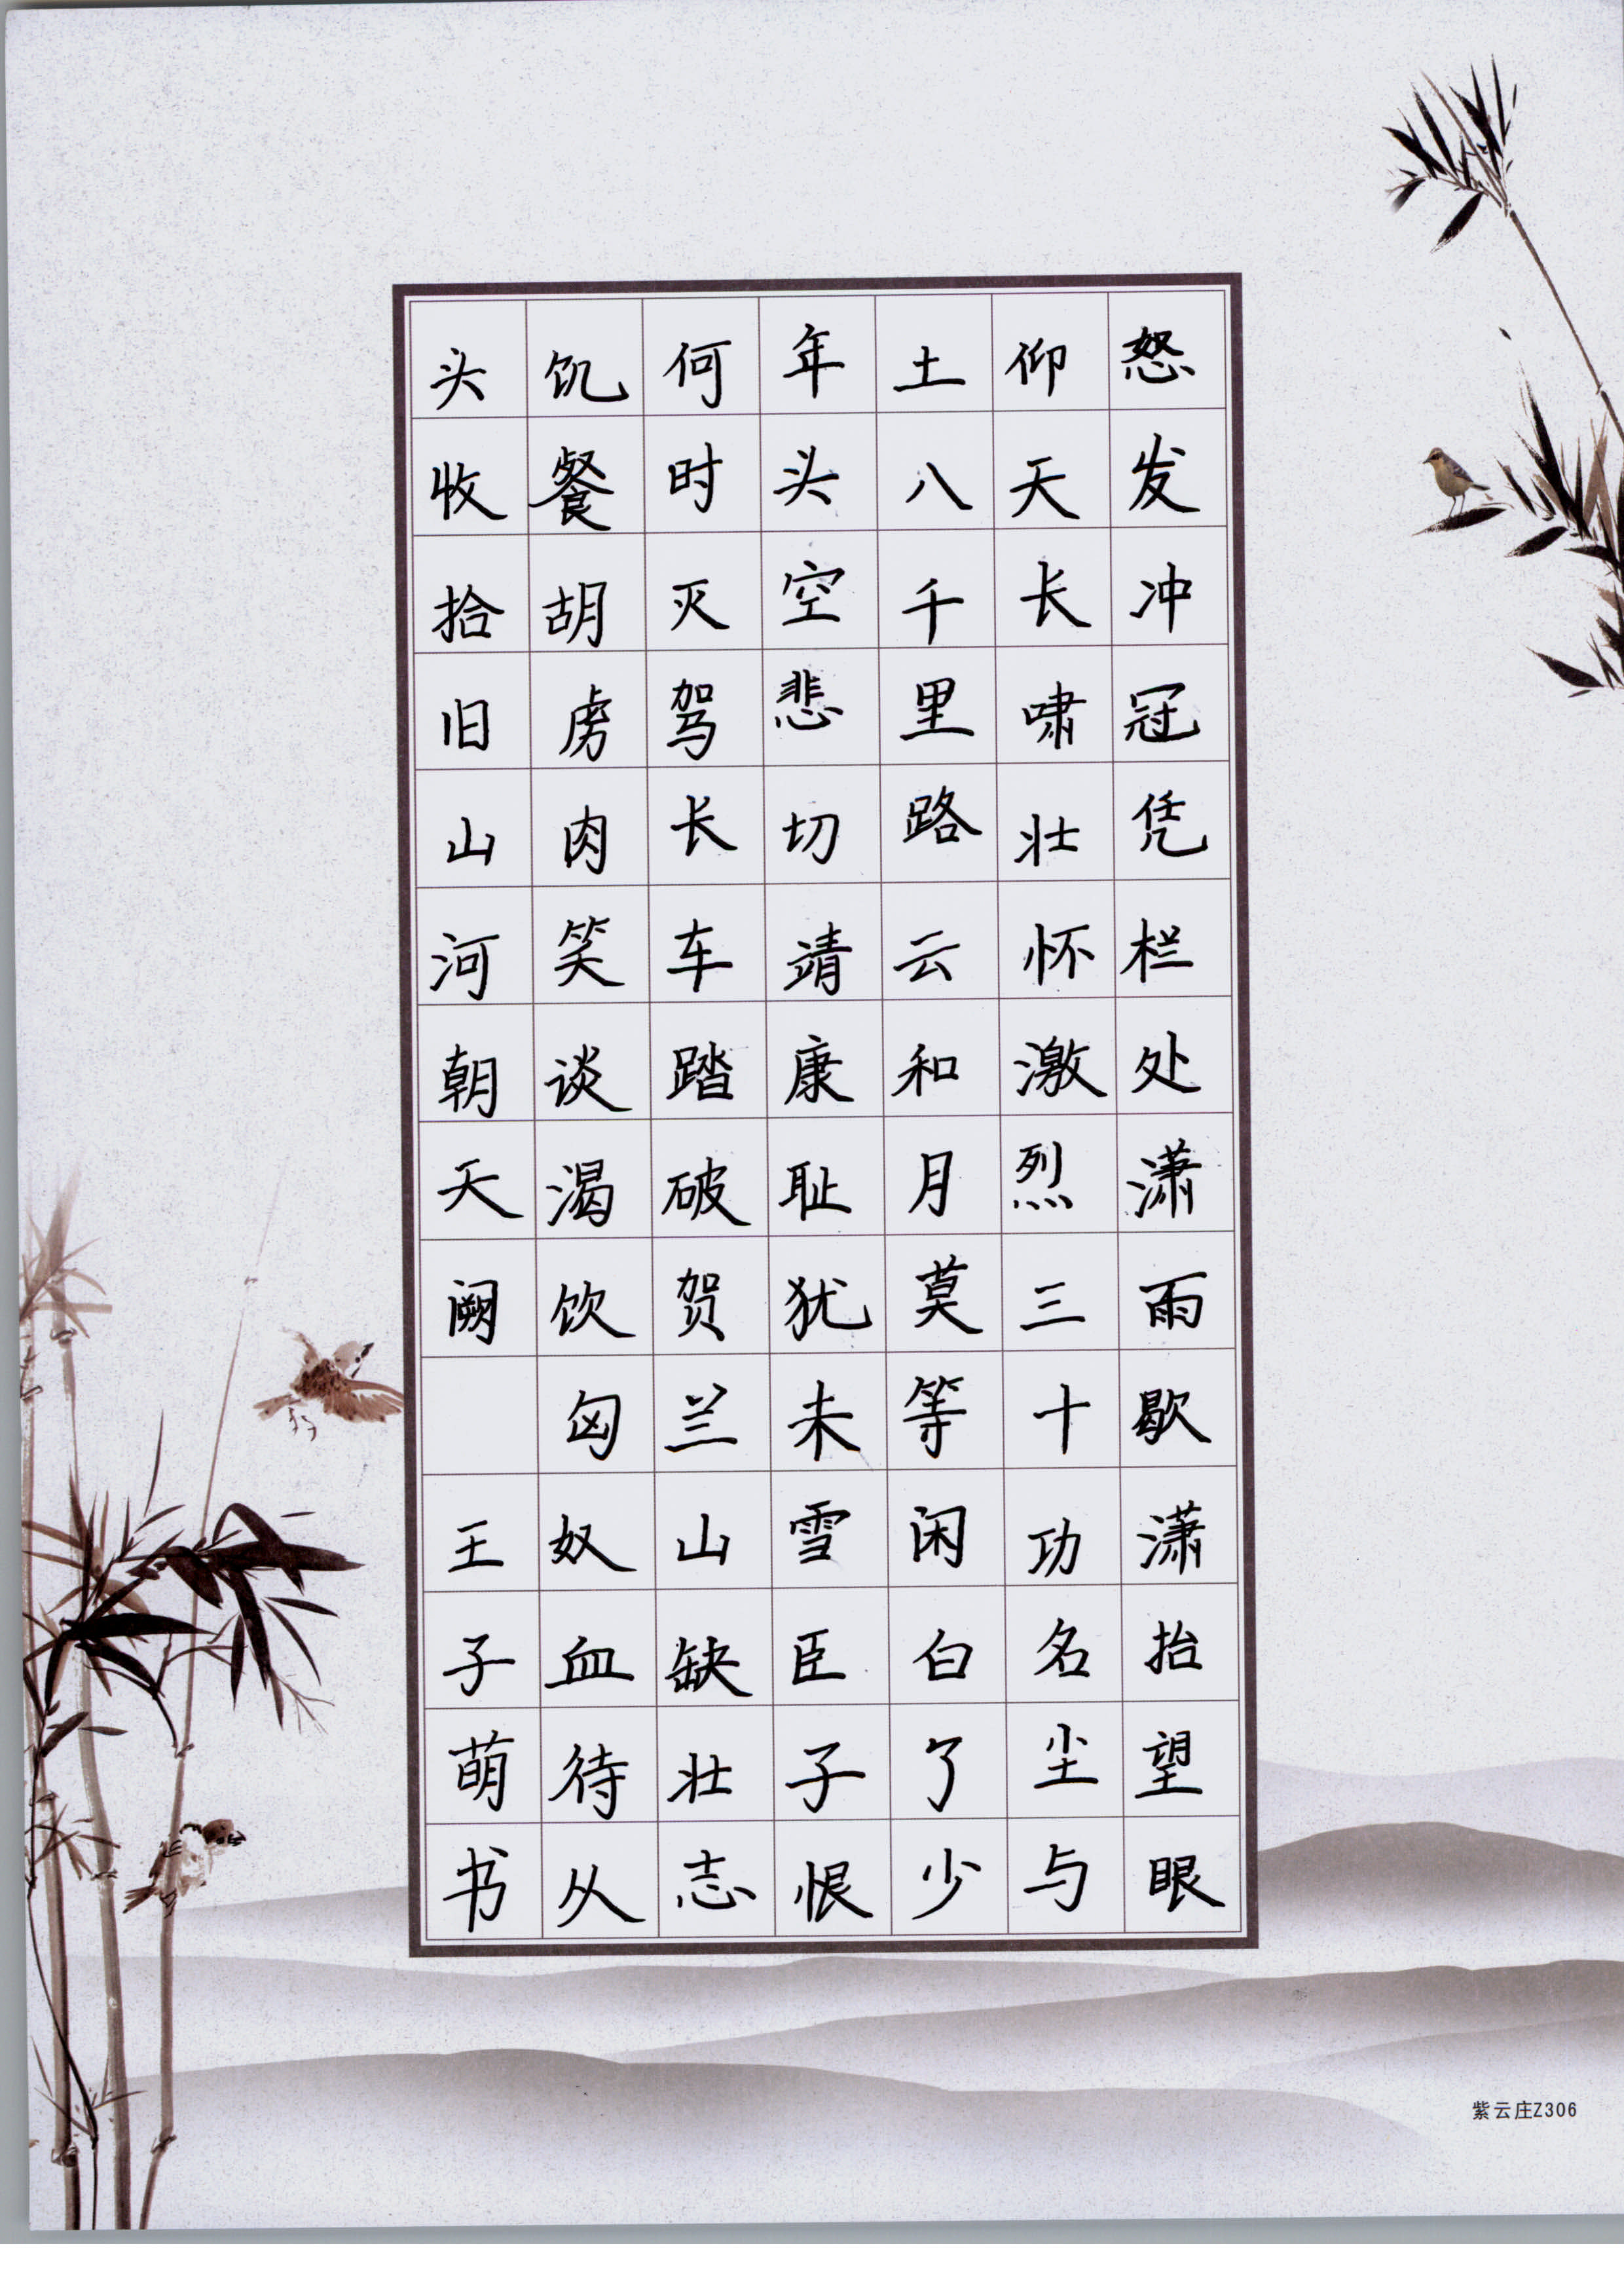 怒发冲冠凭栏处潇雨歇潇抬望眼
仰天长啸壮怀激烈三十功名尘与
土八千里路云和月莫等闲白了少
年头空悲切靖康耻犹未雪臣子恨
何时灭驾长车踏破贺兰山缺壮志
饥餐胡虏肉笑谈渴饮匈奴血待从
头收拾旧山河朝天阙
王子萌书
紫云庄Z306